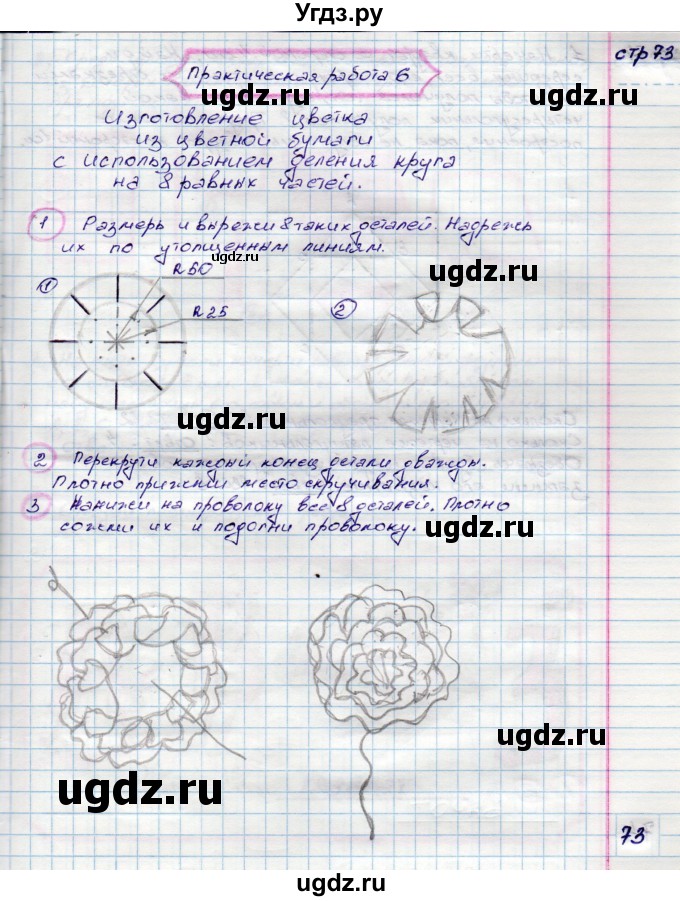 Угдз.ру
стр 73
Практическая работа 6
ugdz.ru
Изготовление цветка
из цветной бумаги
ugdz.ru
с использованием деления круга
на 8 равных частей.
1 Размерь и вырежи 8 таких деталей. Надрежь
их по утолщенным линиям.
ugdz.ru
R 50
ugdz.ru
1
R 25
2
ugdz.ru
ugdz.ru
2 Перекрути каждый конец детали дважды.
Плотно прижми место скручивания.
3 Нанижи на проволоку все 8 деталей. Плотно
сожми их и подогни проволоку.
ugdz.ru
ugdz.ru
ugdz.ru
ugdz.ru
ugdz.ru
73
ugdz.ru